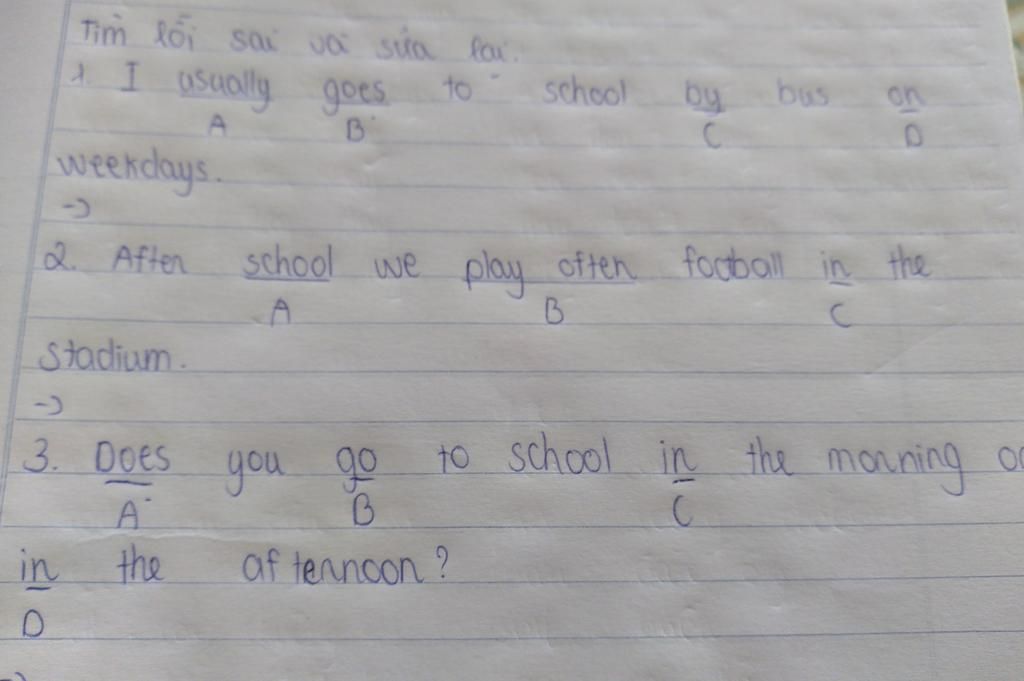 Tìm lỗi sai và sửa lại.
1. I usually goes to school by bus on
A B C D
weekdays.
->
2. After school we play often football in the
A B C
stadium.
->
3. Does you go to school in the morning or
A B C
in the afternoon?
D